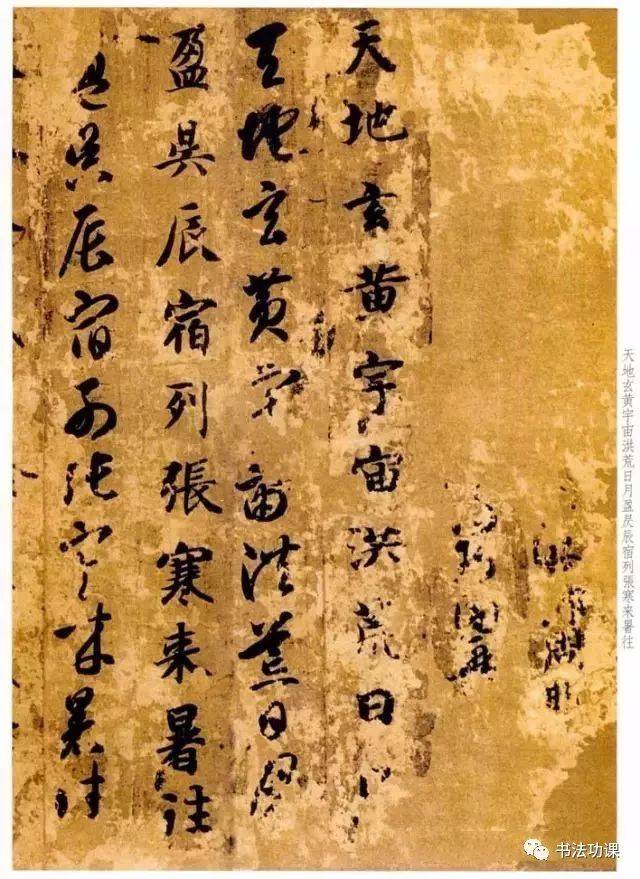 天地玄黄宇宙洪荒日月盈昃辰宿列張寒来暑往
天地玄黄宇宙洪荒日月
天地玄黄宇宙洪荒日月
盈昃辰宿列張寒来暑往
盈昃辰宿列張寒来暑往
书法功课